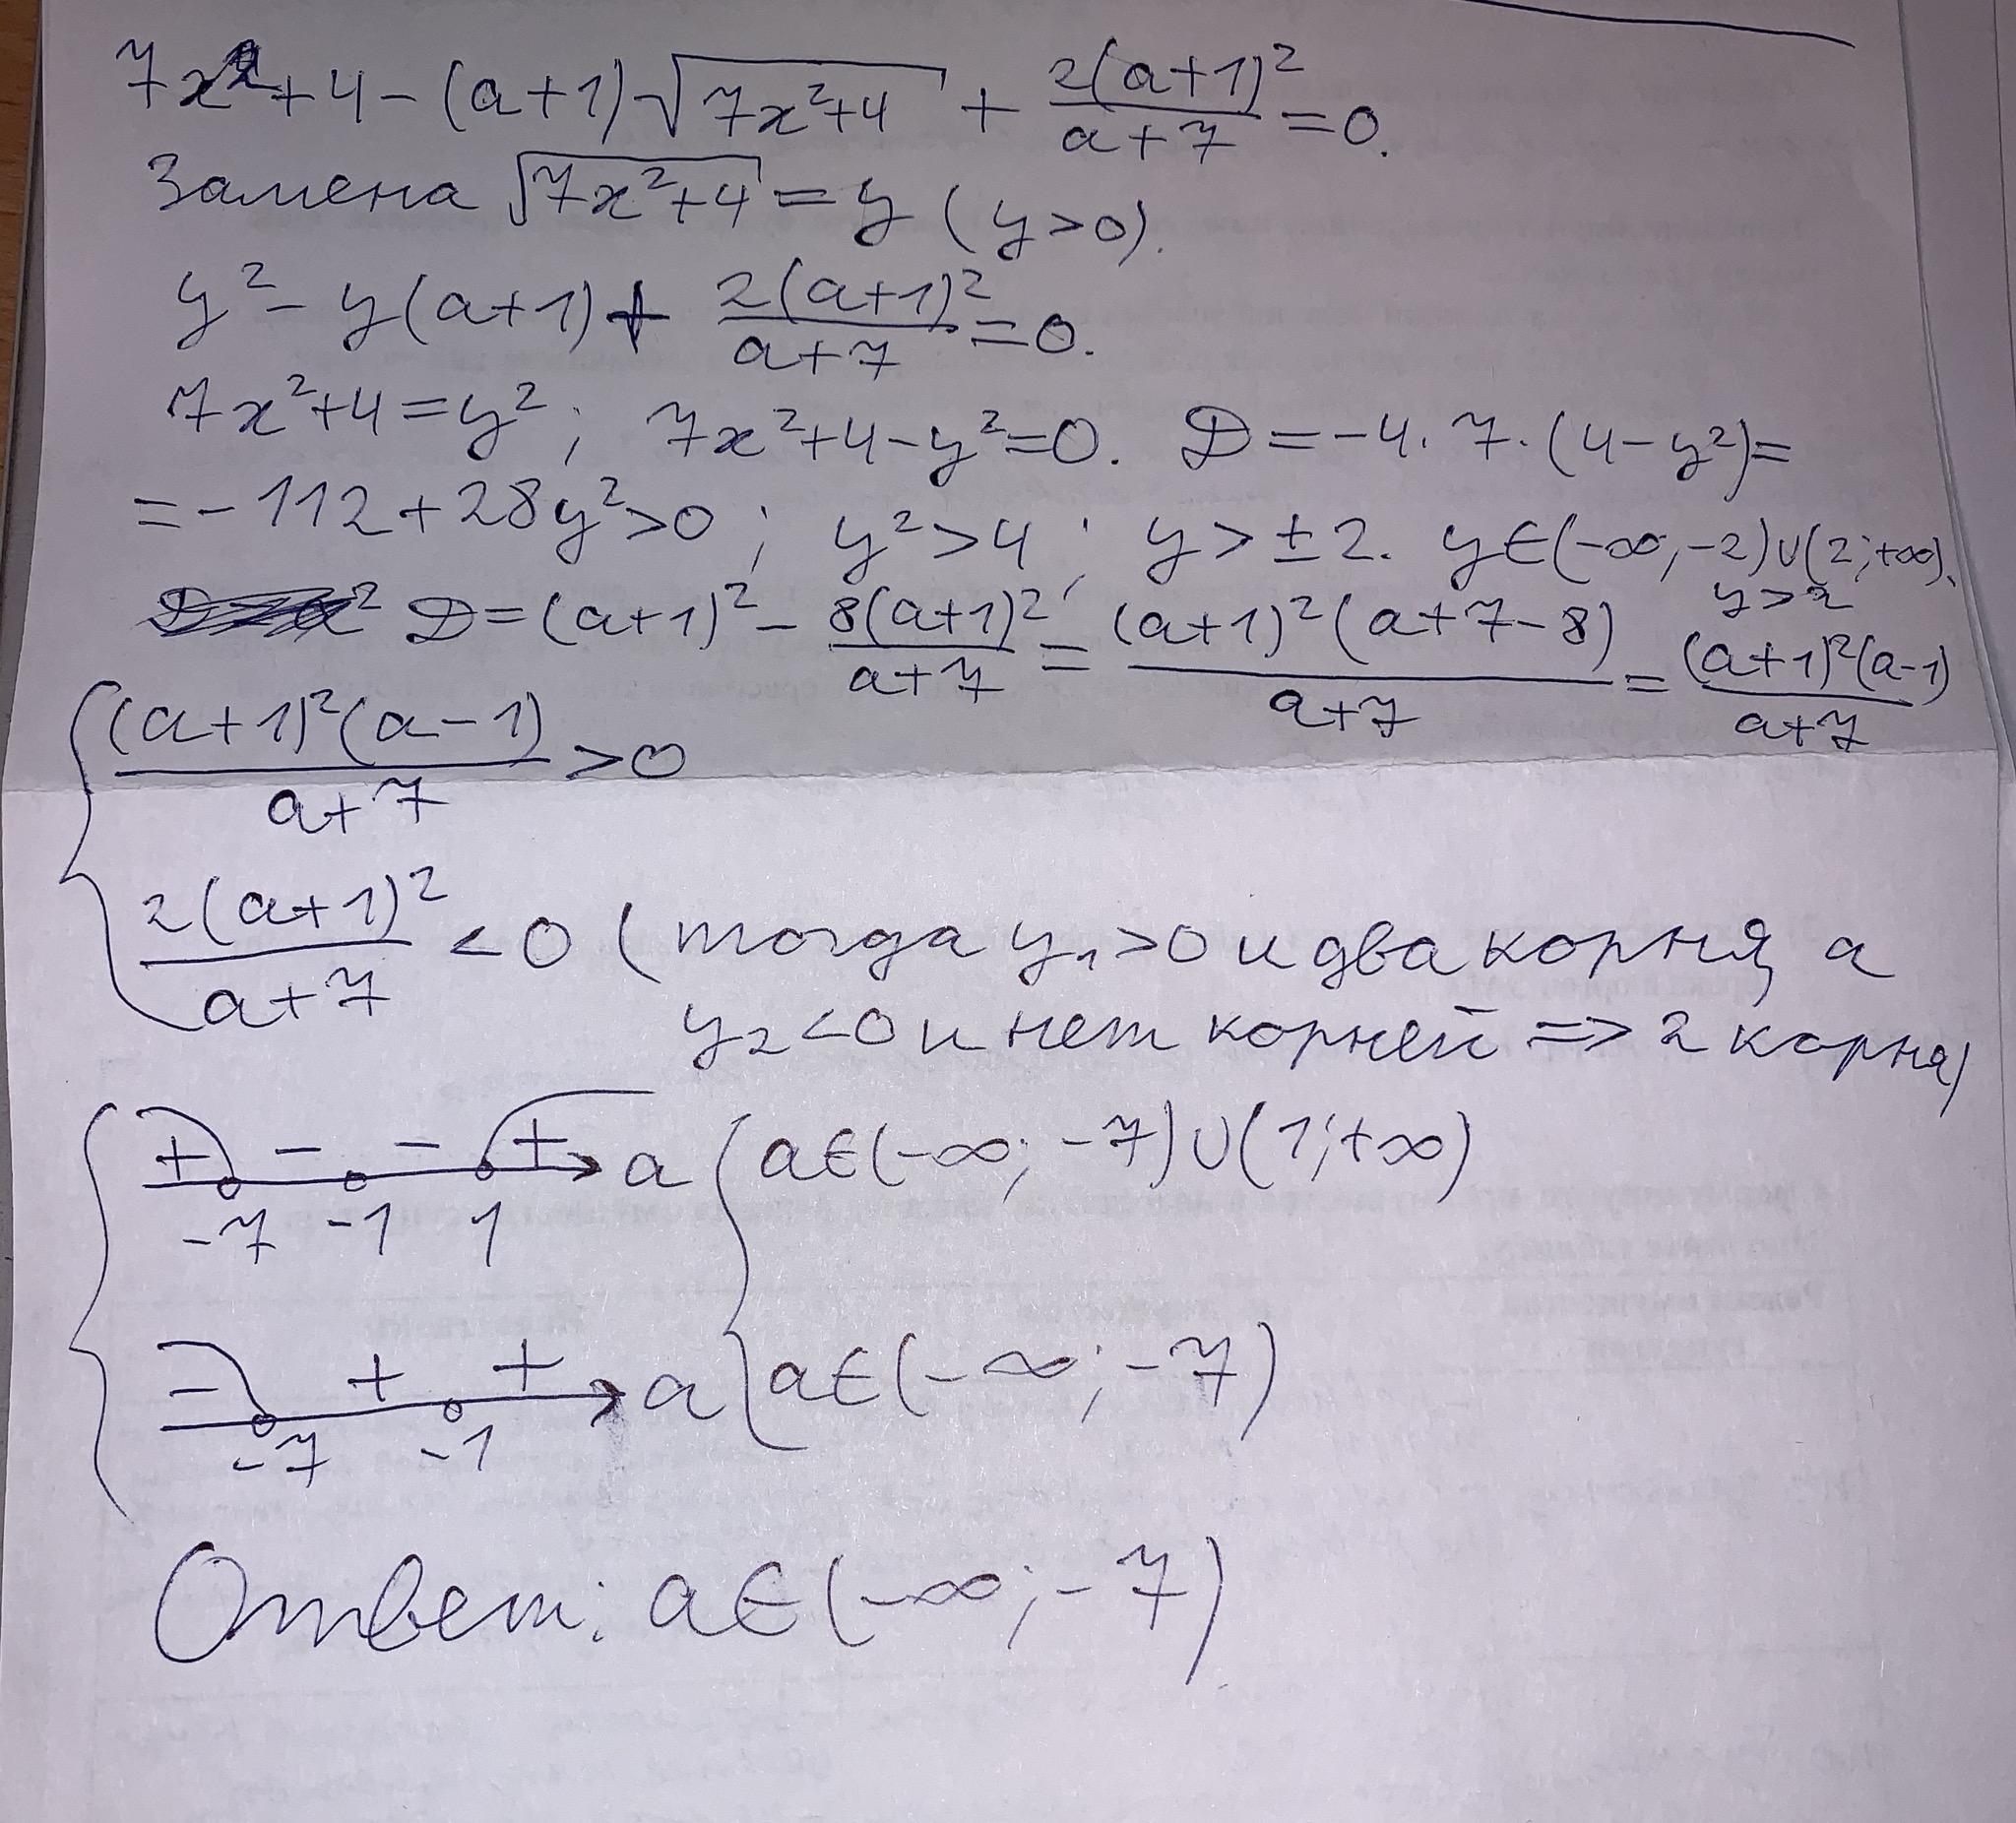 7x²+4-(a+1)√(7x²+4) + 2(a+1)²/(a+7) = 0.
Замена √(7x²+4) = y (y>0).
y² - y(a+1) + 2(a+1)²/(a+7) = 0.
7x²+4=y²; 7x²+4-y²=0. D=-4·7·(4-y²)=
=-112+28y²>0; y²>4; y>±2. y∈(-∞;-2)∪(2;+∞).
y>2
D=(a+1)² - 8(a+1)²/(a+7) = (a+1)²(a+7-8)/(a+7) = (a+1)²(a-1)/(a+7)
{ (a+1)²(a-1)/(a+7) > 0
2(a+1)²/(a+7) < 0 (тогда y₁>0 и два корня, а
y₂<0 и нет корней => 2 корня)
{ + - - + a { a∈(-∞;-7)∪(1;+∞)
-7 -1 1
- + + a a∈(-∞;-7)
-7 -1
Ответ: a∈(-∞;-7)